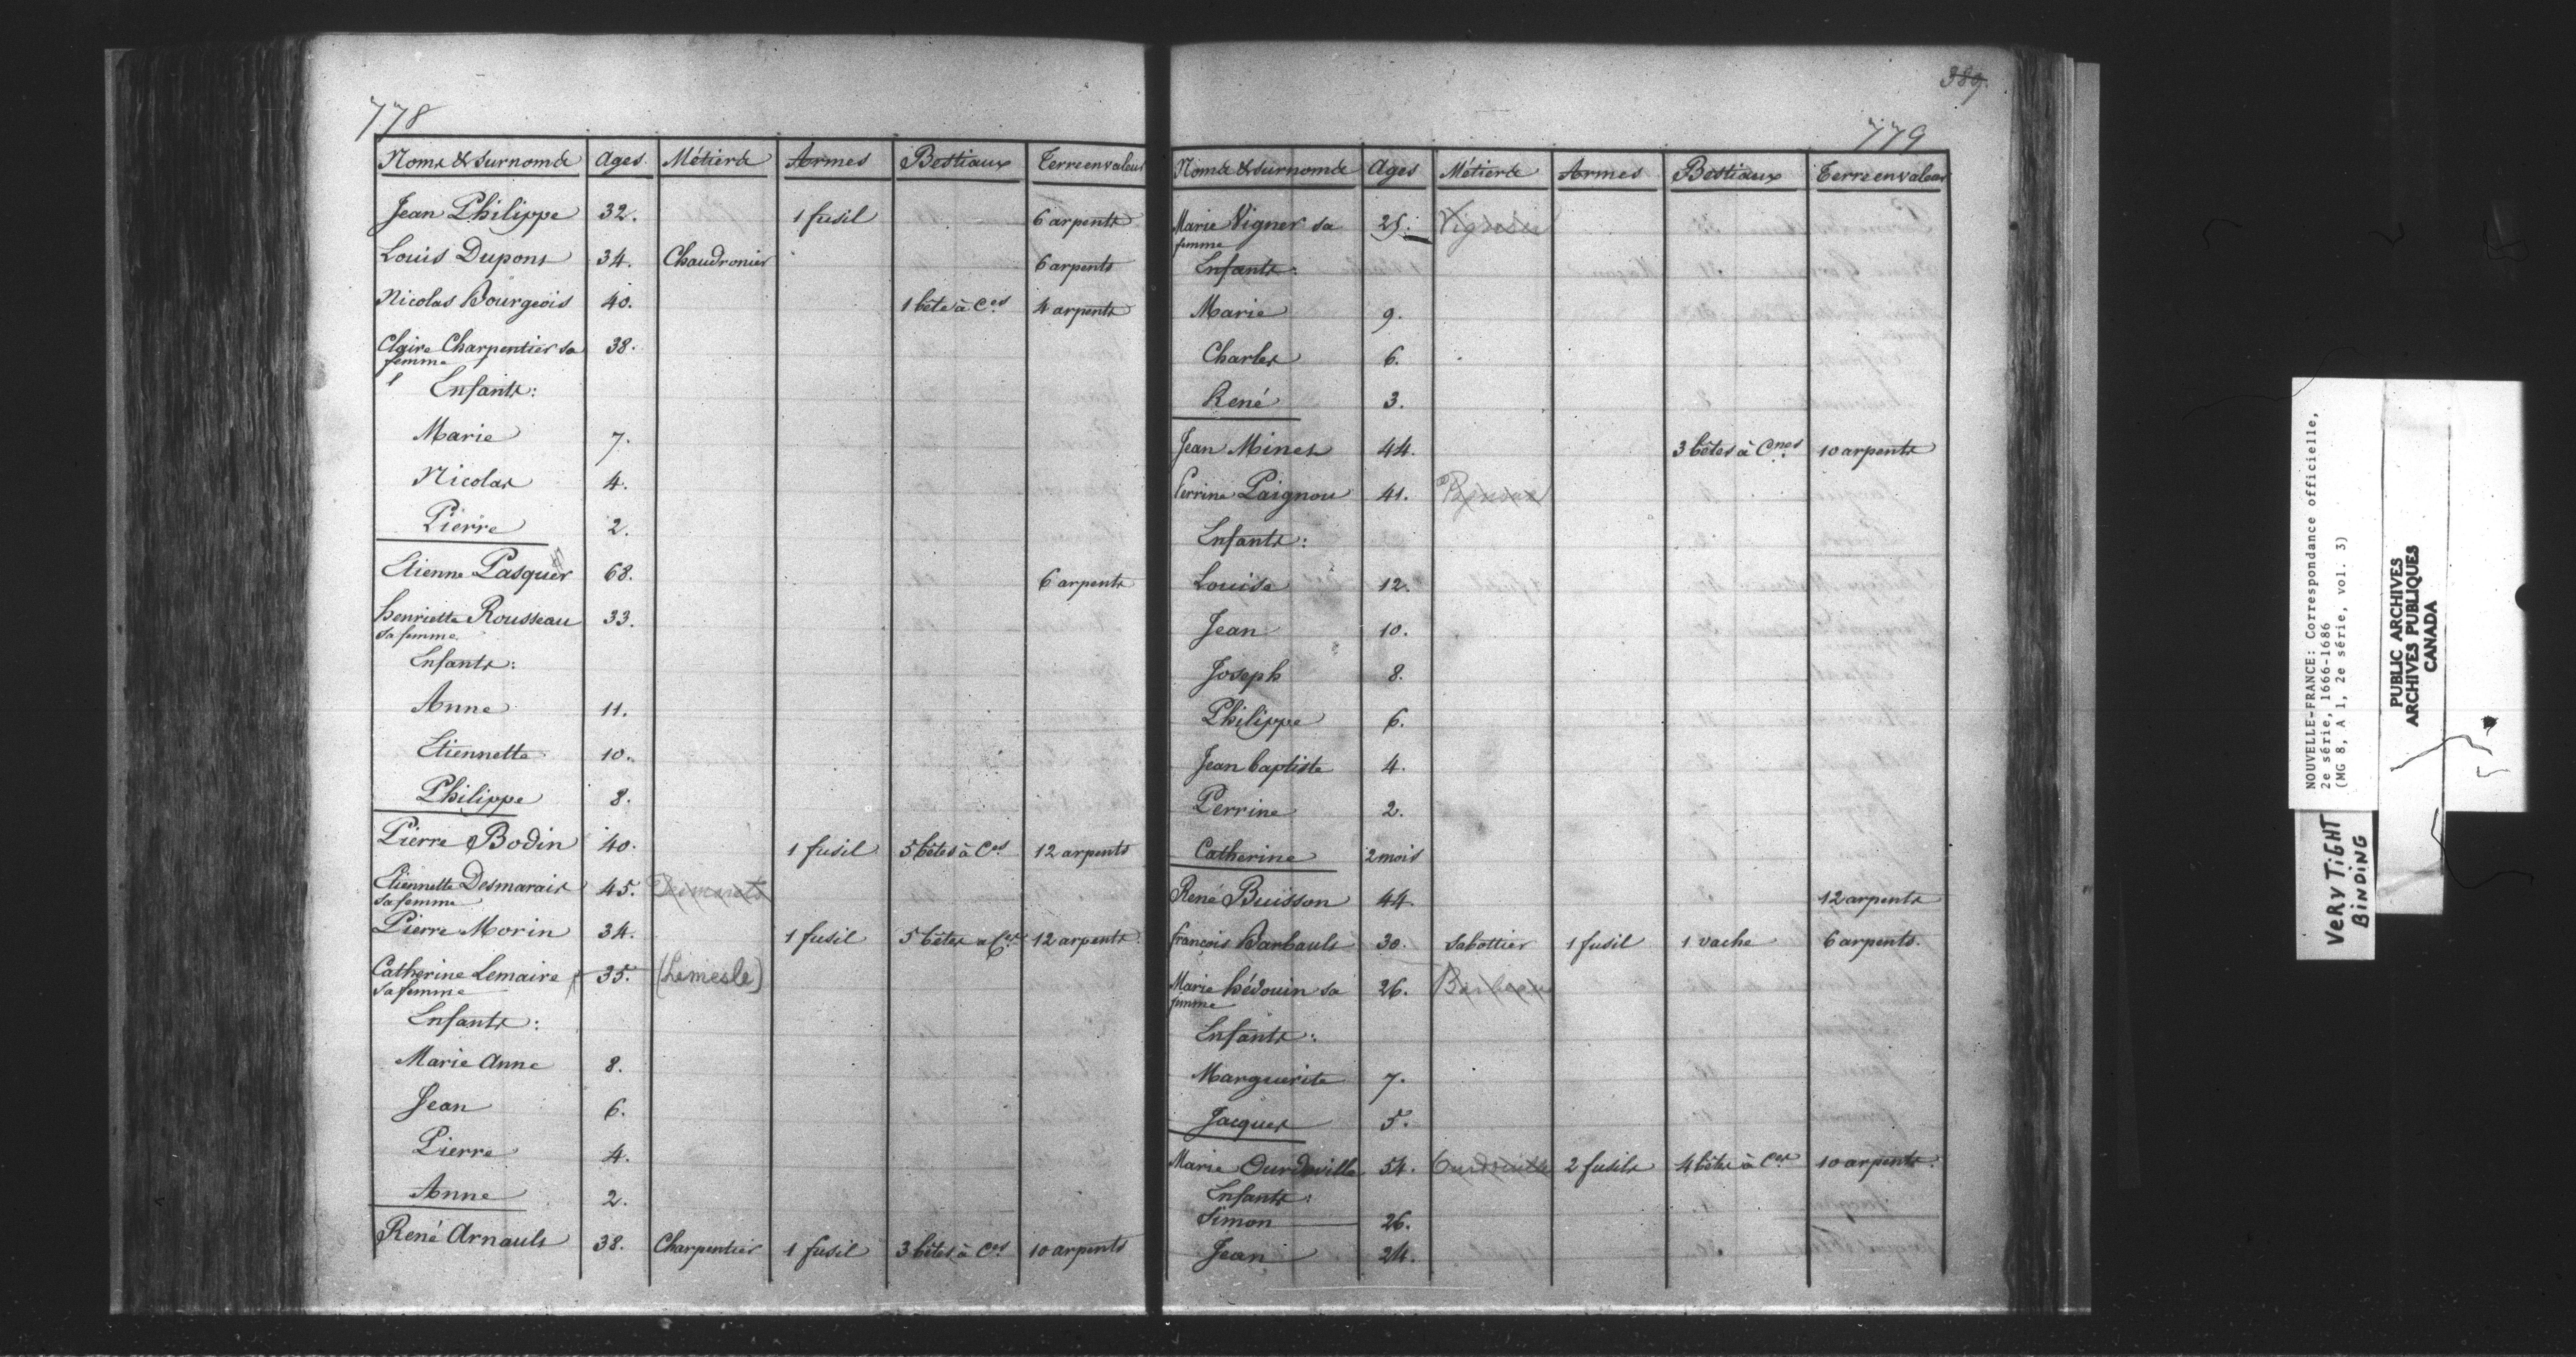 778
Noms & surnoms Ages. Métiers Armes Bestiaux Terre en valeur
Jean Philippe 32. 1 fusil 6 arpents
Louis Dupont 34. Chaudronier 6 arpents
Nicolas Bourgeois 40. 1 bête à C.es 4 arpents
Claire Charpentier sa 38.
femme
Enfants:
Marie 7.
Nicolas 4.
Pierre 2.
Etienne Pasquer 68. 6 arpents
henriette Rousseau 33.
sa femme
Enfants:
Anne 11.
Etiennette 10.
Philippe 8.
Pierre Bodin 40. 1 fusil 5 bêtes à C.es 12 arpents
Etiennette Desmarais 45. Desmarets
sa femme
Pierre Morin 34. 1 fusil 5 bêtes a C.es 12 arpents.
Catherine Lemaire 35. (Lemesle)
sa femme
Enfants:
Marie Anne 8.
Jean 6.
Pierre 4.
Anne 2.
René Arnault 38. Charpentier 1 fusil 3 bêtes à C.es 10 arpents
389.
779
Noms & surnoms Ages Métiers Armes Bestiaux Terre en valeur
Marie Vigner sa 25.
femme
Enfants:
Marie 9.
Charles 6.
René 3.
Jean Minet 44. 3 bêtes à C.nes 10 arpents
Perrine Paignou 41.
Enfants:
Louise 12.
Jean 10.
Joseph 8.
Philippe 6.
Jean baptiste 4.
Perrine 2.
Catherine 2 mois
René Buisson 44. 12 arpents
françois Barbault 30. Sabottier 1 fusil 1 vache 6 arpents.
Marie hédouin sa 26.
femme
Enfants:
Marguerite 7.
Jacques 5.
Marie Ourdouille 54. 2 fusils 4 bêtes à C.es 10 arpents.
Enfants:
Simon 26.
Jean 24.
NOUVELLE-FRANCE: Correspondance officielle,
2e série, 1666-1686
(MG 8, A 1, 2e série, vol. 3)
VERY TIGHT
BINDING
PUBLIC ARCHIVES
ARCHIVES PUBLIQUES
CANADA